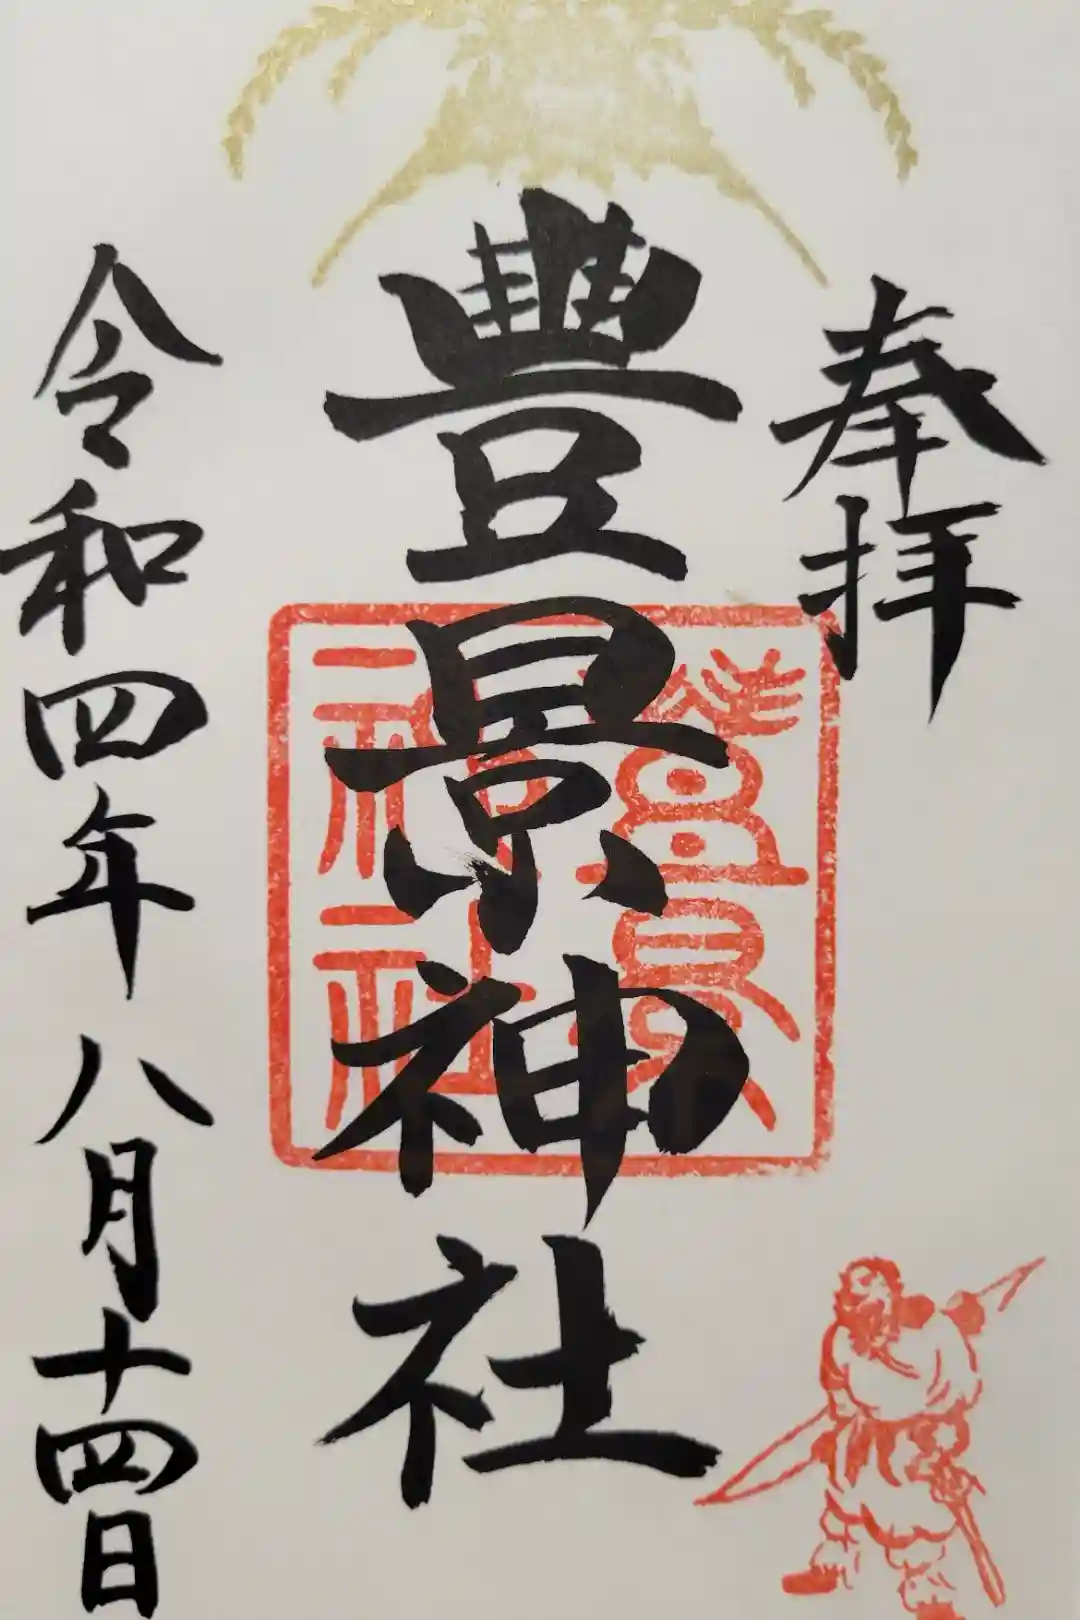 奉拝
豊景神社
豊景神社
令和四年八月十四日